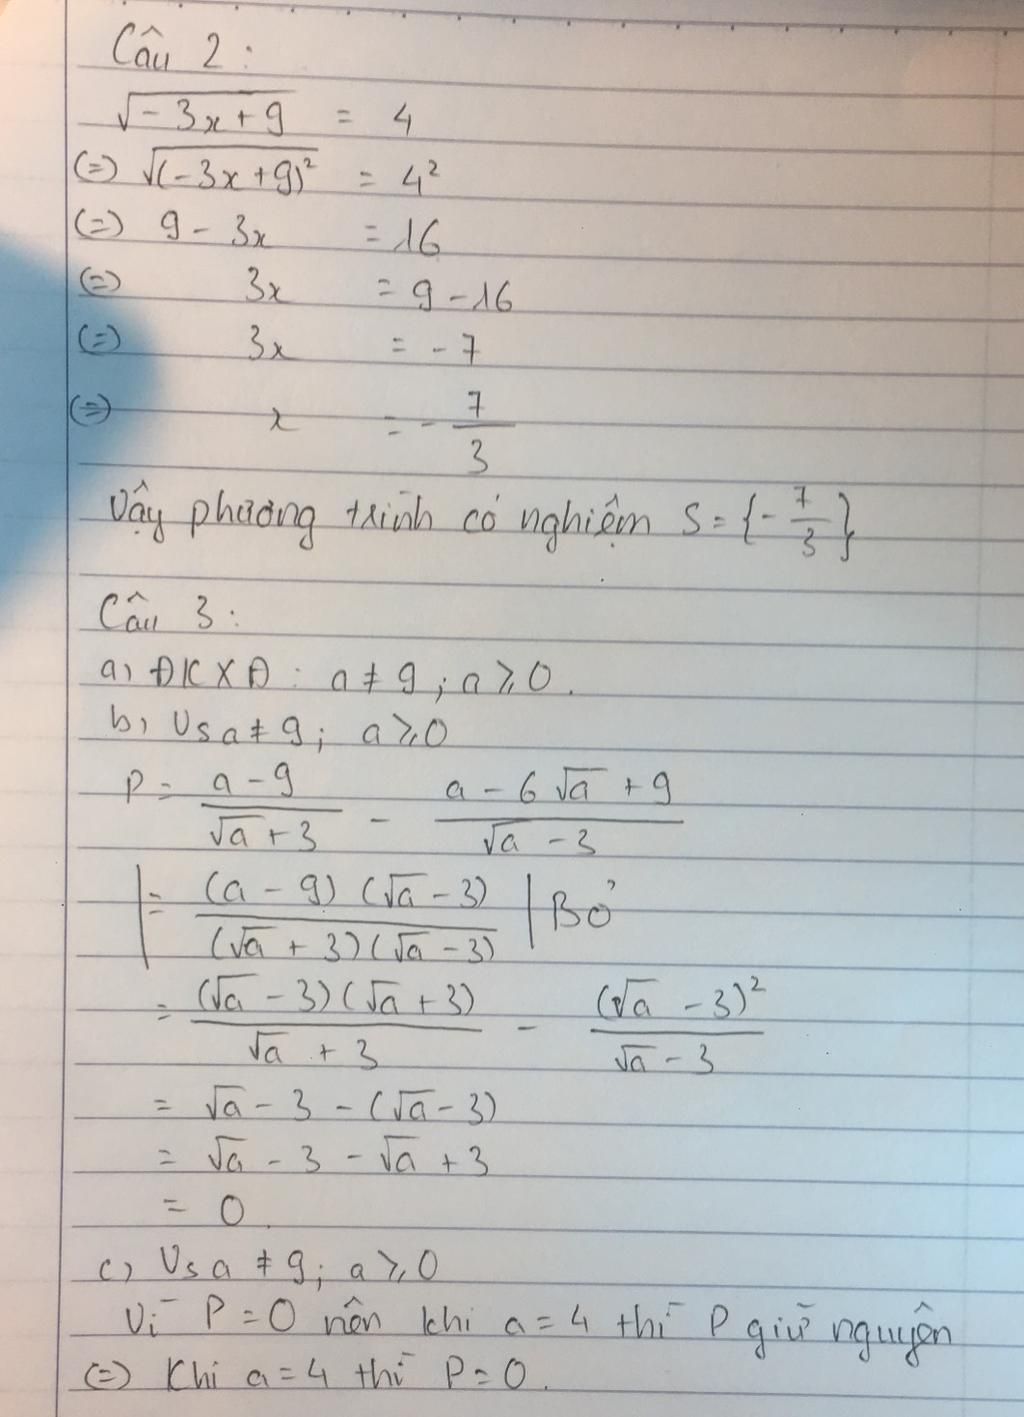 Câu 2:
√(-3x+9) = 4
(=) √(-3x+9)² = 4²
(=) 9 - 3x = 16
(=) 3x = 9 - 16
(=) 3x = -7
(=) x = -7/3
Vậy phương trình có nghiệm S = {-7/3}
Câu 3:
a) ĐKXĐ: a ≠ 9; a ⩾ 0.
b) Vs a ≠ 9; a ⩾ 0
P = (a - 9)/(√a + 3) - (a - 6√a + 9)/(√a - 3)
| = (a - 9)(√a - 3)/(√a + 3)(√a - 3) | Bỏ
= (√a - 3)(√a + 3)/(√a + 3) - (√a - 3)²/(√a - 3)
= √a - 3 - (√a - 3)
= √a - 3 - √a + 3
= 0.
c) Vs a ≠ 9; a ⩾ 0
Vì P = 0 nên khi a = 4 thì P giữ nguyên
(=) Khi a = 4 thì P = 0.